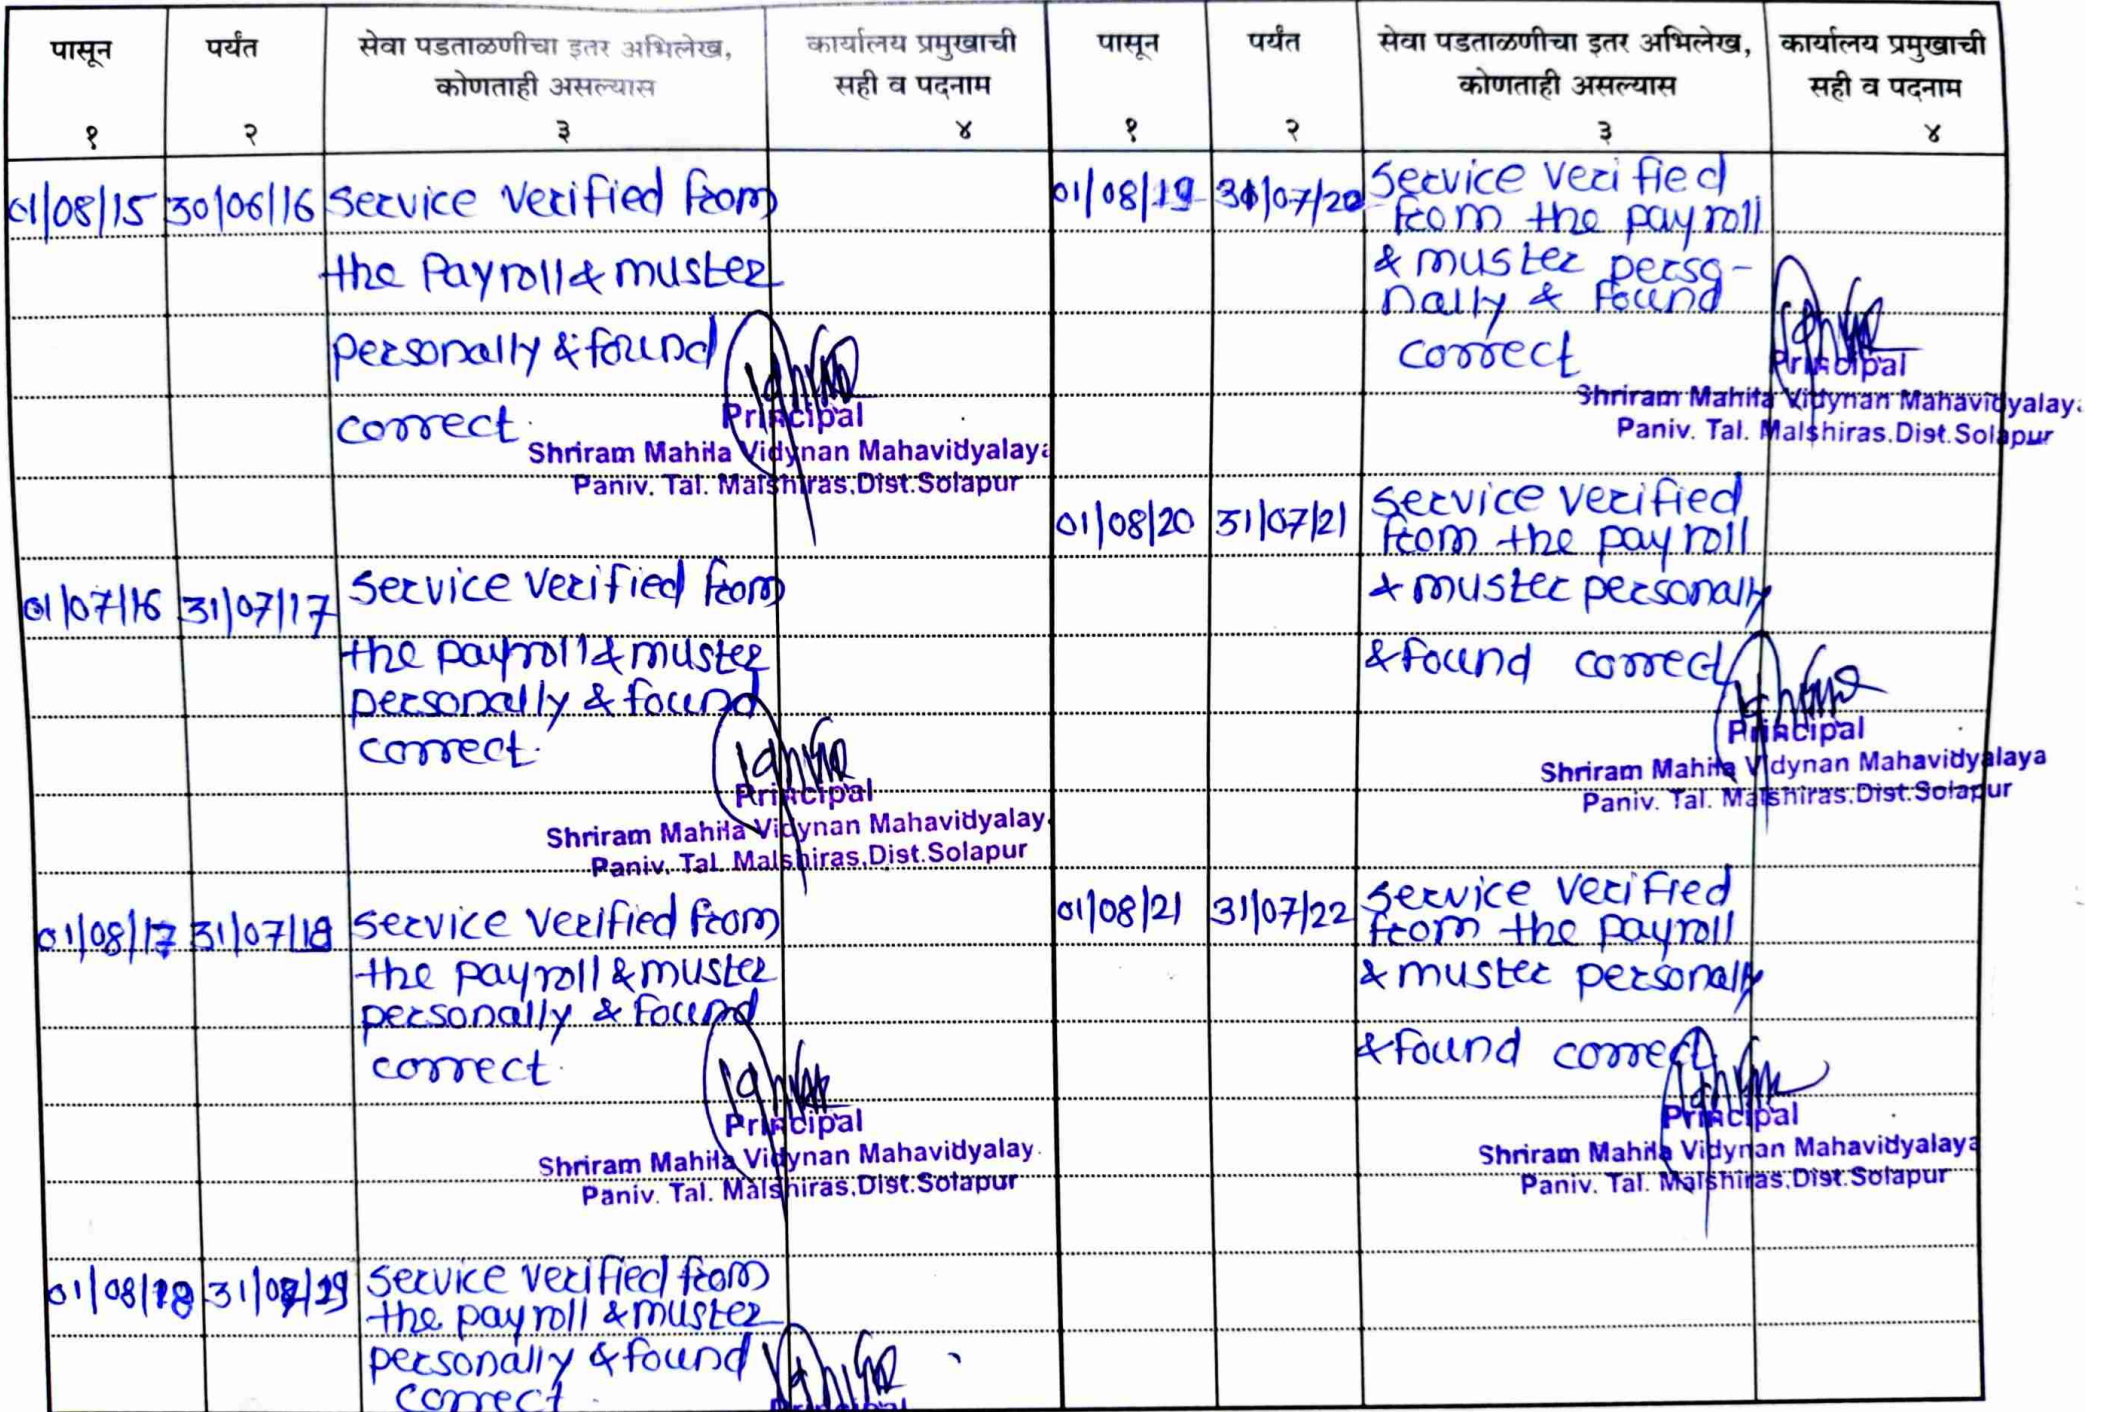 पासून
पर्यंत
सेवा पडताळणीचा इतर अभिलेख,
कोणताही असल्यास
कार्यालय प्रमुखाची
सही व पदनाम
१
२
३
४
01/08/15 30/06/16 Service Verified from
the Payroll & muster
personally & found
correct.
Principal
Shriram Mahila Vidynan Mahavidyalaya
Paniv. Tal. Malshiras.Dist.Solapur
01/07/16 31/07/17 Service Verified from
the payroll & muster
personally & found
correct.
Principal
Shriram Mahila Vidynan Mahavidyalay
Paniv. Tal. Malshiras.Dist.Solapur
01/08/17 31/07/18 Service Verified from
the payroll & muster
personally & found
correct.
Principal
Shriram Mahila Vidynan Mahavidyalay
Paniv. Tal. Malshiras.Dist.Solapur
01/08/18 Service Verified from
the payroll & muster
personally & found
correct.
Principal
पासून
पर्यंत
सेवा पडताळणीचा इतर अभिलेख,
कोणताही असल्यास
कार्यालय प्रमुखाची
सही व पदनाम
१
२
३
४
01/08/19 31/07/20 Service Verified
from the payroll
& muster perso-
nally & found
correct
Principal
Shriram Mahila Vidynan Mahavidyalay
Paniv. Tal. Malshiras.Dist.Solapur
01/08/20 31/07/21 Service Verified
from the payroll
& muster personally
& found correct
Principal
Shriram Mahila Vidynan Mahavidyalaya
Paniv. Tal. Malshiras.Dist.Solapur
01/08/21 31/07/22 Service Verified
from the payroll
& muster personally
& found correct
Principal
Shriram Mahila Vidynan Mahavidyalaya
Paniv. Tal. Malshiras.Dist.Solapur